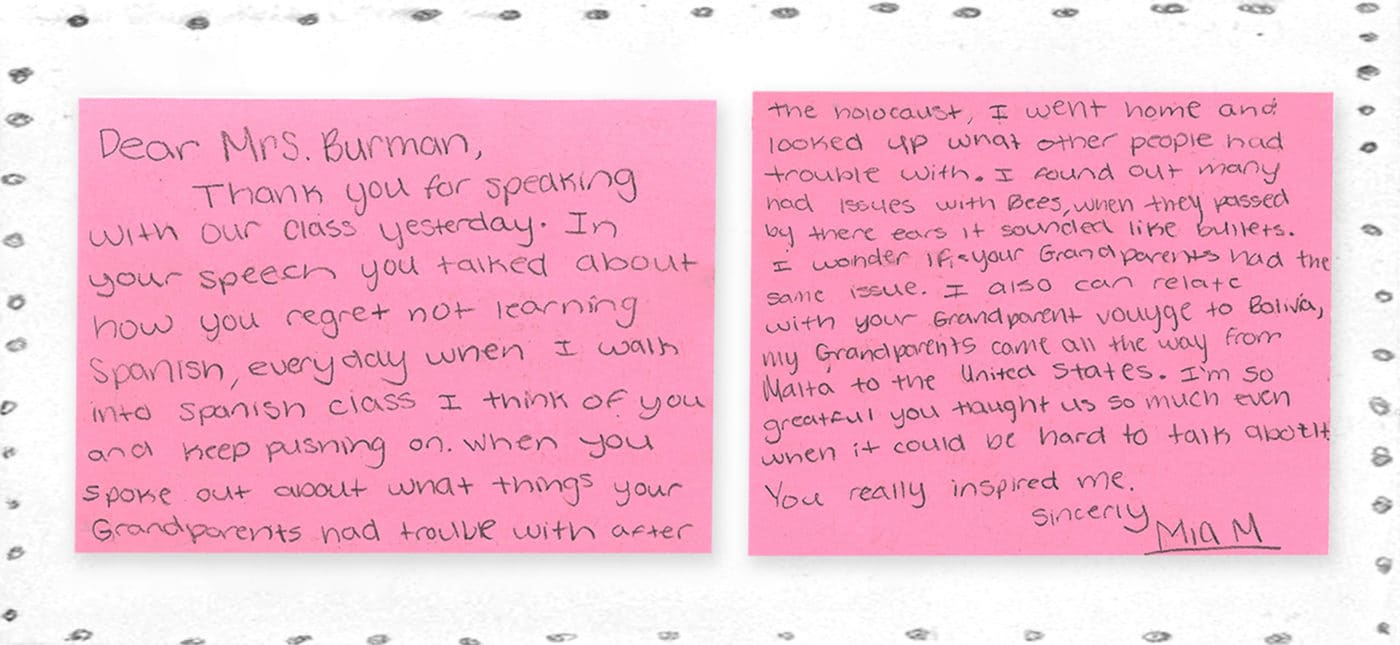 Dear Mrs. Burman,
Thank you for speaking
with our class yesterday. In
your speech you talked about
how you regret not learning
Spanish, everyday when I walk
into Spanish class I think of you
and keep pushing on. When you
spoke out about what things your
Grandparents had trouble with after
the holocaust, I went home and
looked up what other people had
trouble with. I found out many
had issues with Bees, when they passed
by there ears it sounded like bullets.
I wonder if your Grandparents had the
same issue. I also can relate
with your Grandparent vouyge to Bolivia,
my Grandparents came all the way from
Malta to the United States. I'm so
greatful you taught us so much even
when it could be hard to talk about it.
You really inspired me.
Sincerly
Mia M